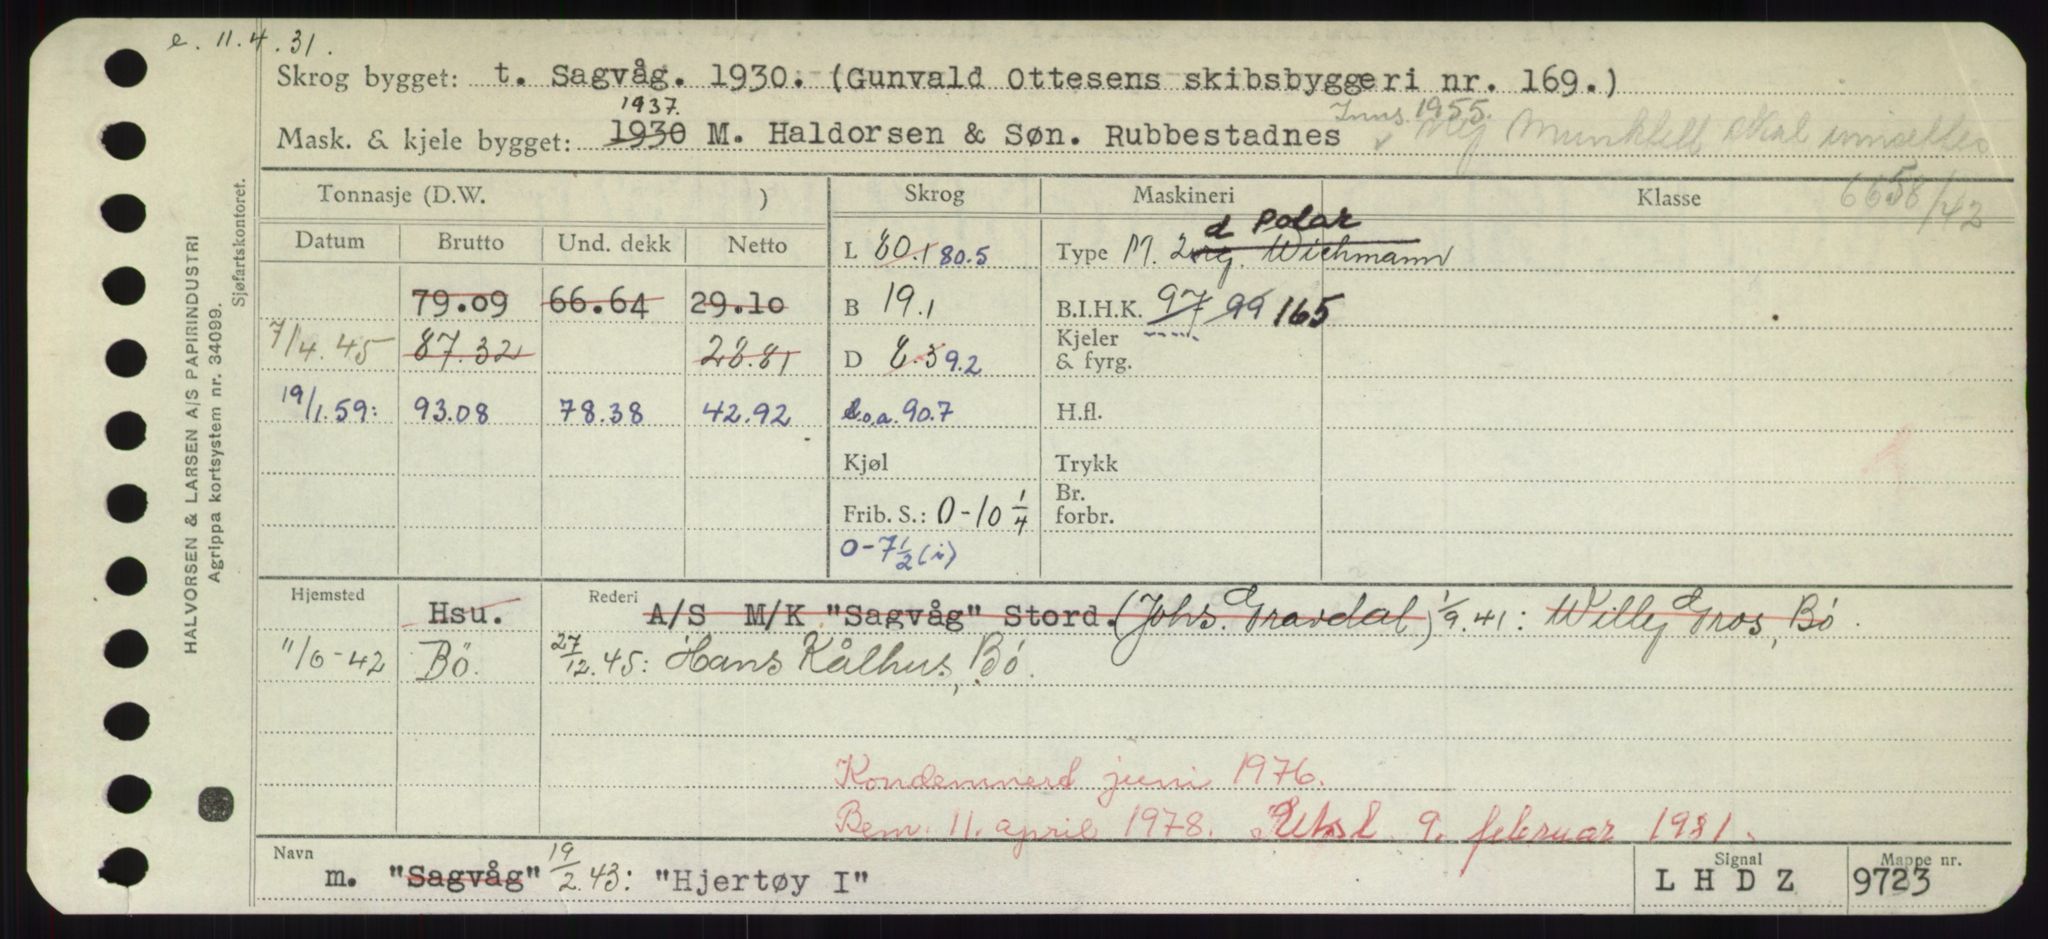 e. 11.4.31.
Skrog bygget: t. Sagvåg. 1930. (Gunvald Ottesens skibsbyggeri nr. 169.)
1937. Inns. 1955.
Mask. & kjele bygget: 1930 M. Haldorsen & Søn. Rubbestadnes Ny Munktell skal innsettes
6658/42
Tonnasje (D.W. ) Skrog Maskineri Klasse
Datum Brutto Und. dekk Netto
d Polar
L 80.1 80.5 Type M. 2 Wichmann
79.09 66.64 29.10 B 19.1 B.I.H.K. 97 99 165
7/4.45 87.32 28.81 D 8.3 9.2 Kjeler & fyrg.
19/1.59: 93.08 78.38 42.92 l.o.a. 90.7 H.fl.
Kjøl Trykk
Frib. S.: 0-10 1/4 Br. forbr.
0-7 1/2 (i)
Hjemsted Hsu. Rederi A/S M/K "Sagvåg" Stord. (Johs. Gravdal) 1/9.41: Willy Gros, Bø.
11/6-42 Bö. 27/12.45: Hans Kålhus, Bö.
Kondemnerd juni 1976.
Bem. 11. april 1978. 9. februar 1981.
Navn m. "Sagvåg" 19/2.43: "Hjertøy I" Signal LHDZ Mappe nr. 9723
HALVORSEN & LARSEN A/S PAPIRINDUSTRI
Agrippa kortsystem nr. 34099.
Sjøfartskontoret.